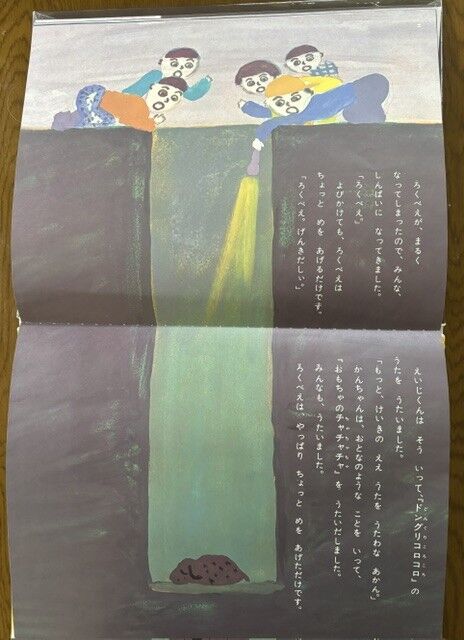 ろくべえが、まるく
なってしまったので、みんな、
しんぱいに なってきました。
「ろくべえ。」
よびかけても、ろくべえは
ちょっと めを あげるだけです。
「ろくべえ。げんきだしぃ。」
えいじくんは そう いって、「ドングリコロコロ」の
うたを うたいました。
「もっと、けいきの ええ うたを うたわな あかん。」
かんちゃんは、おとなのような ことを いって、
「おもちゃのチャチャチャ」を うたいだしました。
みんなも、うたいました。
ろくべえは、やっぱり ちょっと めを あげただけです。